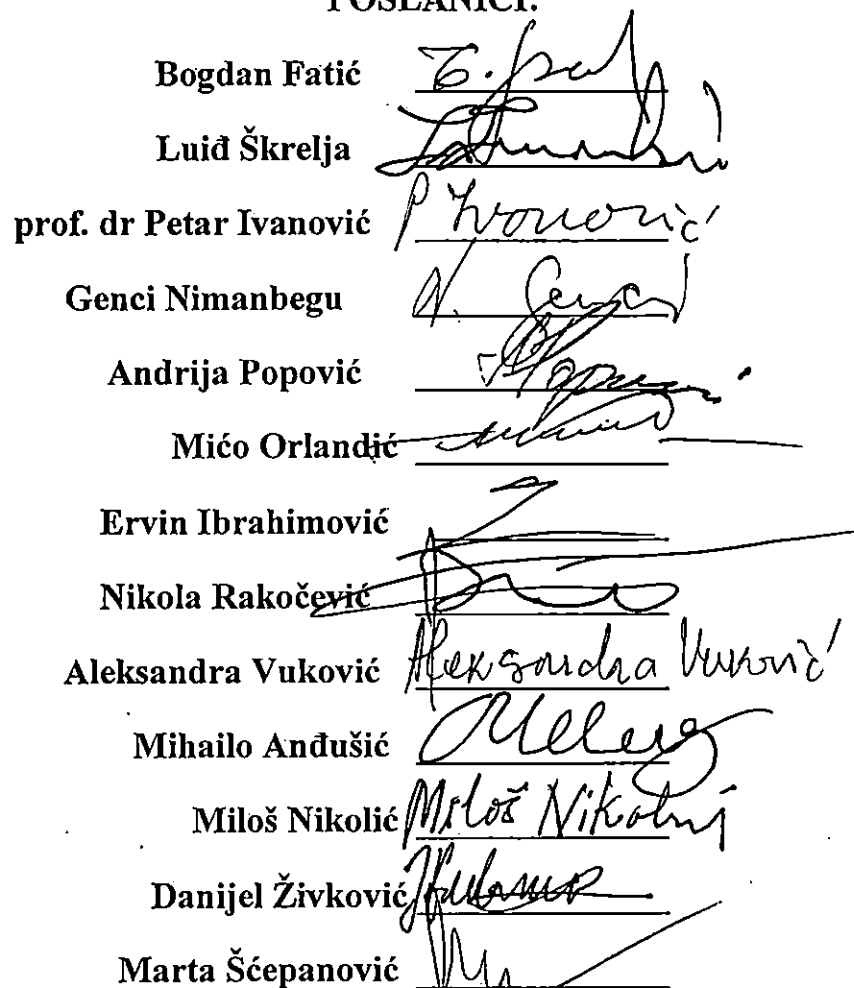 POSLANICI:
Bogdan Fatić
Luiđ Škrelja
prof. dr Petar Ivanović P Ivanović
Genci Nimanbegu N. Genci
Andrija Popović
Mićo Orlandić
Ervin Ibrahimović
Nikola Rakočević
Aleksandra Vuković Aleksandra Vuković
Mihailo Anđušić
Miloš Nikolić Miloš Nikolić
Danijel Živković
Marta Šćepanović